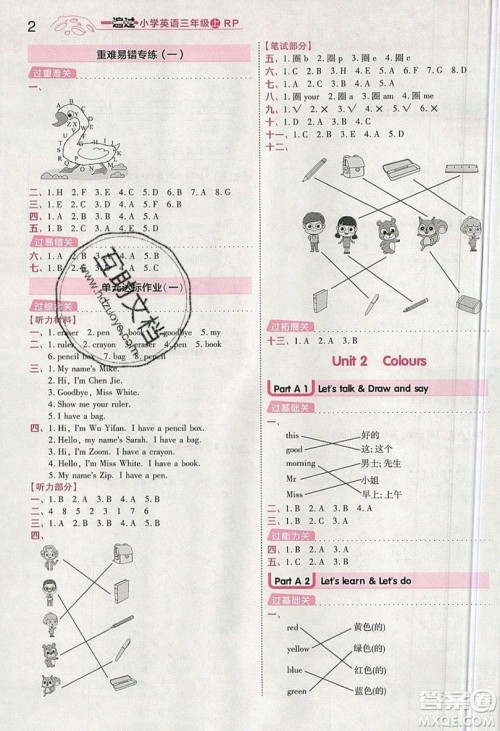 2
一遍过 小学英语三年级 上 RP
重难易错专练（一）
过重难关
一、
二、1. H 2. F 3. E 4. C 5. D 6. B 7. A 8. G
四、1. A 2. B 3. A 4. B 5. A
过易错关
六、1. B 2. A 3. A 4. A 5. B 6. B
七、1. B 2. A 3. C
单元达标作业（一）
过综合关
【听力材料】
一、1. eraser 2. pen 3. book 4. goodbye 5. my
二、1. name 2. ruler 3. pencil 4. book 5. crayon
6. pencil box 7. bag 8. pencil
三、1. My name's Mike.
2. Hi, I'm Chen Jie.
3. Goodbye, Miss White.
4. Show me your ruler.
5. I have a bag.
四、1. Hi, I'm Wu Yifan. I have a pencil box.
2. Hello, my name's Sarah. I have a book.
3. Hi, I'm Zoom. I have a crayon.
4. Hello, I'm Miss White. I have a bag.
5. My name's Zip. I have a pen.
【听力部分】
一、1. B 2. A 3. A 4. B 5. A
二、4 8 5 2 3 1 7 6
三、1. B 2. B 3. A 4. A 5. B
四、
【笔试部分】
五、1. 圈 b 2. 圈 p 3. 圈 o 4. 圈 e
六、1. A 2. A 3. B 4. A 5. B
七、1. B 2. A 3. A 4. B 5. B
八、1. 圈 your 2. 圈 am 3. 圈 a 4. 圈 name
九、1. √ 2. √ 3. × 4. √ 5. ×
十、1. A 2. A 3. B 4. A 5. B
十一、1. C 2. B 3. E 4. A 5. D
十二、
过拓展关
十三、1. A 2. A 3. B
Unit 2 Colours
Part A 1 Let's talk & Draw and say
过基础关
一、
this 好的
good 这; 这个
morning 男士; 先生
Mr 小姐
Miss 早上; 上午
二、1. B 2. A 3. B 4. A
过能力关
三、1. B 2. A 3. A
Part A 2 Let's learn & Let's do
过基础关
一、
red 黄色(的)
yellow 绿色(的)
blue 红色(的)
green 蓝色(的)
互助文档
www.hdzuoye.com
答案圈
MXQE.COM